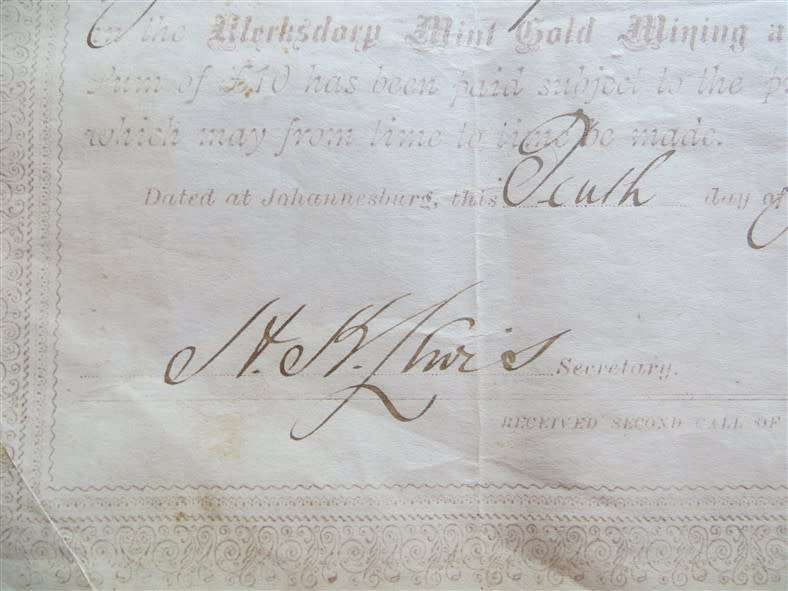 in the Klerksdorp Mint Gold Mining a
sum of £10 has been paid subject to the p
which may from time to time be made.
Dated at Johannesburg, this Tenth day of
H. H. Lewis Secretary.
RECEIVED SECOND CALL OF